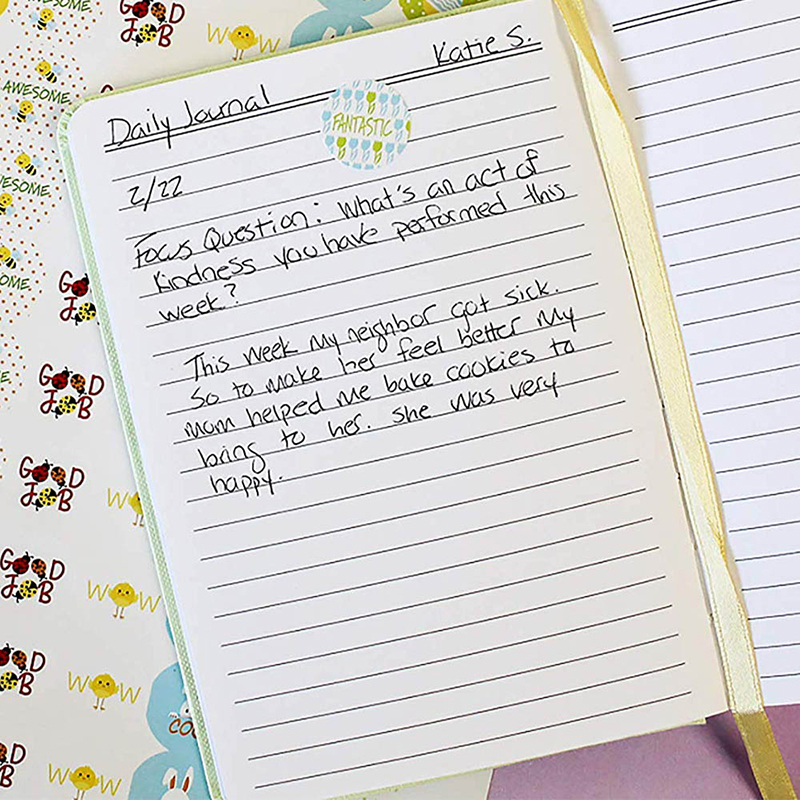 Katie S.
Daily Journal
FANTASTIC
2/22
Focus Question: What's an act of
kindness you have performed this
week?
This week my neighbor got sick.
So to make her feel better my
mom helped me bake cookies to
bring to her. She was very
happy.
GOOD JOB
WOW
AWESOME
AWESOME
AWESOME
GOOD
JOB
GOOD
JOB
GOOD
JOB
WOW
GOOD
JOB
WOW
GOOD
JOB
WOW
WOW